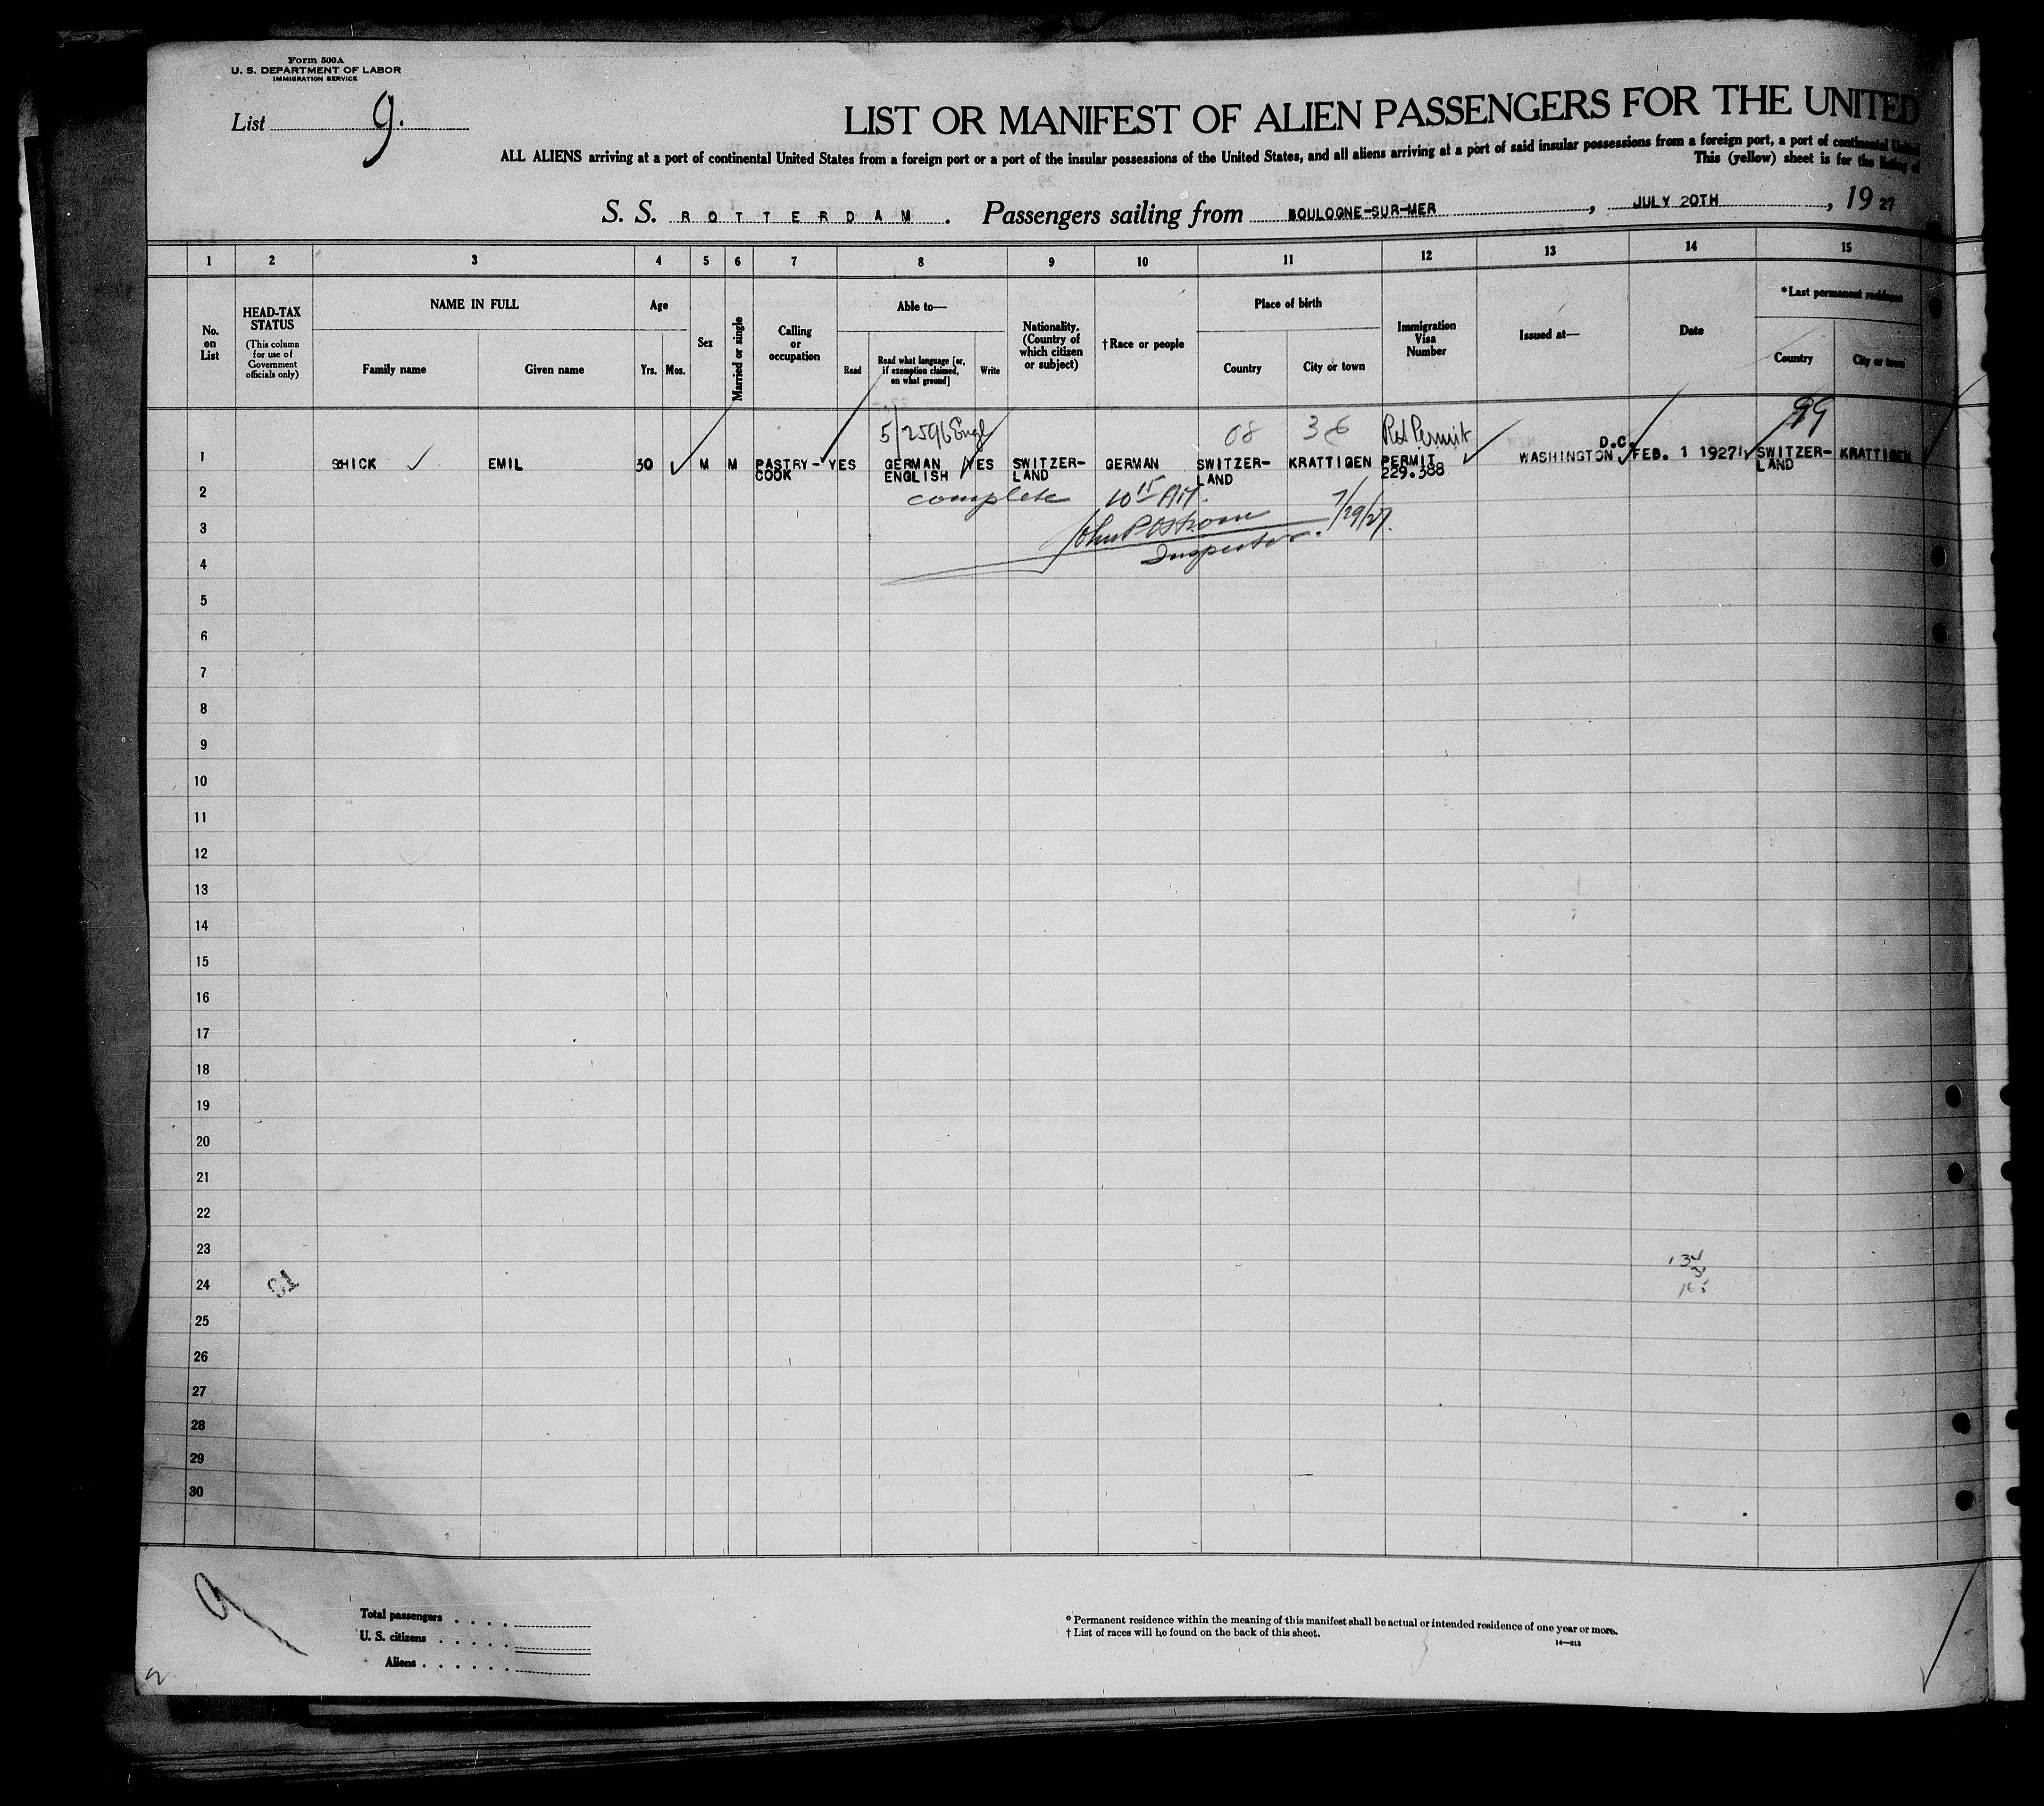 Form 500A
U. S. DEPARTMENT OF LABOR
IMMIGRATION SERVICE
List 9.
LIST OR MANIFEST OF ALIEN PASSENGERS FOR THE UNITED
ALL ALIENS arriving at a port of continental United States from a foreign port or a port of the insular possessions of the United States, and all aliens arriving at a port of said insular possessions from a foreign port, a port of continental United
This (yellow) sheet is for the listing of
S. S. ROTTERDAM. Passengers sailing from BOULOGNE-SUR-MER, JULY 20TH, 1927
1 2 3 4 5 6 7 8 9 10 11 12 13 14 15
No. on List
HEAD-TAX STATUS
(This column for use of Government officials only)
NAME IN FULL
Family name Given name
Age
Yrs. Mos.
Sex
Married or single
Calling or occupation
Able to—
Read
Read what language [or, if exemption claimed, on what ground]
Write
Nationality. (Country of which citizen or subject)
† Race or people
Place of birth
Country City or town
Immigration Visa Number
Issued at—
Date
* Last permanent residence
Country City or town
5/2596 Engl 08 36 Ret Permit 99
1 SHICK EMIL 30 M M PASTRY-COOK YES GERMAN ENGLISH YES SWITZER-LAND GERMAN SWITZER-LAND KRATTIGEN PERMIT 229.388 WASHINGTON D.C. FEB. 1 1927 SWITZER-LAND KRATTIGEN
2
complete 10 15 AM.
3
7/29/27.
Inspector.
4
5
6
7
8
9
10
11
12
13
14
15
16
17
18
19
20
21
22
23
24
25
26
27
28
29
30
9
Total passengers
U. S. citizens
Aliens
* Permanent residence within the meaning of this manifest shall be actual or intended residence of one year or more.
† List of races will be found on the back of this sheet.